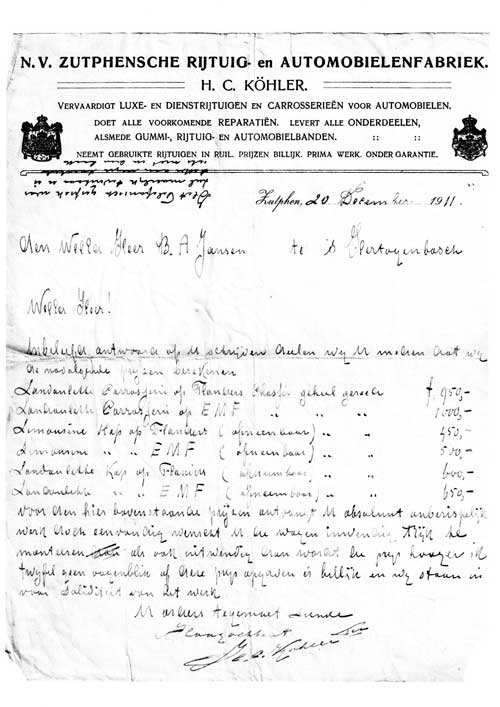 N.V. ZUTPHENSCHE RIJTUIG- en AUTOMOBIELENFABRIEK.
H. C. KÖHLER.
VERVAARDIGT LUXE- EN DIENSTRIJTUIGEN EN CARROSSERIEËN VOOR AUTOMOBIELEN,
DOET ALLE VOORKOMENDE REPARATIËN. LEVERT ALLE ONDERDEELEN,
ALSMEDE GUMMI-, RIJTUIG- EN AUTOMOBIELBANDEN. :: ::
NEEMT GEBRUIKTE RIJTUIGEN IN RUIL. PRIJZEN BILLIJK. PRIMA WERK. ONDER GARANTIE.
Zutphen, 20 December 1911.
Den WelEd Heer B. A Jansen te 's Hertogenbosch
WelEd Heer!
antwoord op U schrijven deelen wij U mede dat wij
de navolgende prijzen berekenen
Landaulette Carrosserie op Flanders Chassis geheel gereed f. 950,-
Landaulette Carrosserie op E M F " " " 1000,-
Limousine Kap op Flanders (afneembaar) " " 450,-
Limousine " " E M F (afneembaar) " " 500,-
Landaulette Kap op Flanders (afneembaar " " 600,-
Landaulette " " E M F (afneembaar) " " 650,-
voor den hier bovenstaande prijzen ontvangt U absoluut onberispelijk
werk doch eenvoudig wenscht U de wagen inwendig rijk te
monteeren als ook uitwendig dan wordt de prijs hooger ik
twijfel geen oogenblik of deze prijs opgaven is billijk en wij staan in
voor Soliditeit van het werk
U orders tegemoet ziende
Hoogachtend
H.C. Köhler